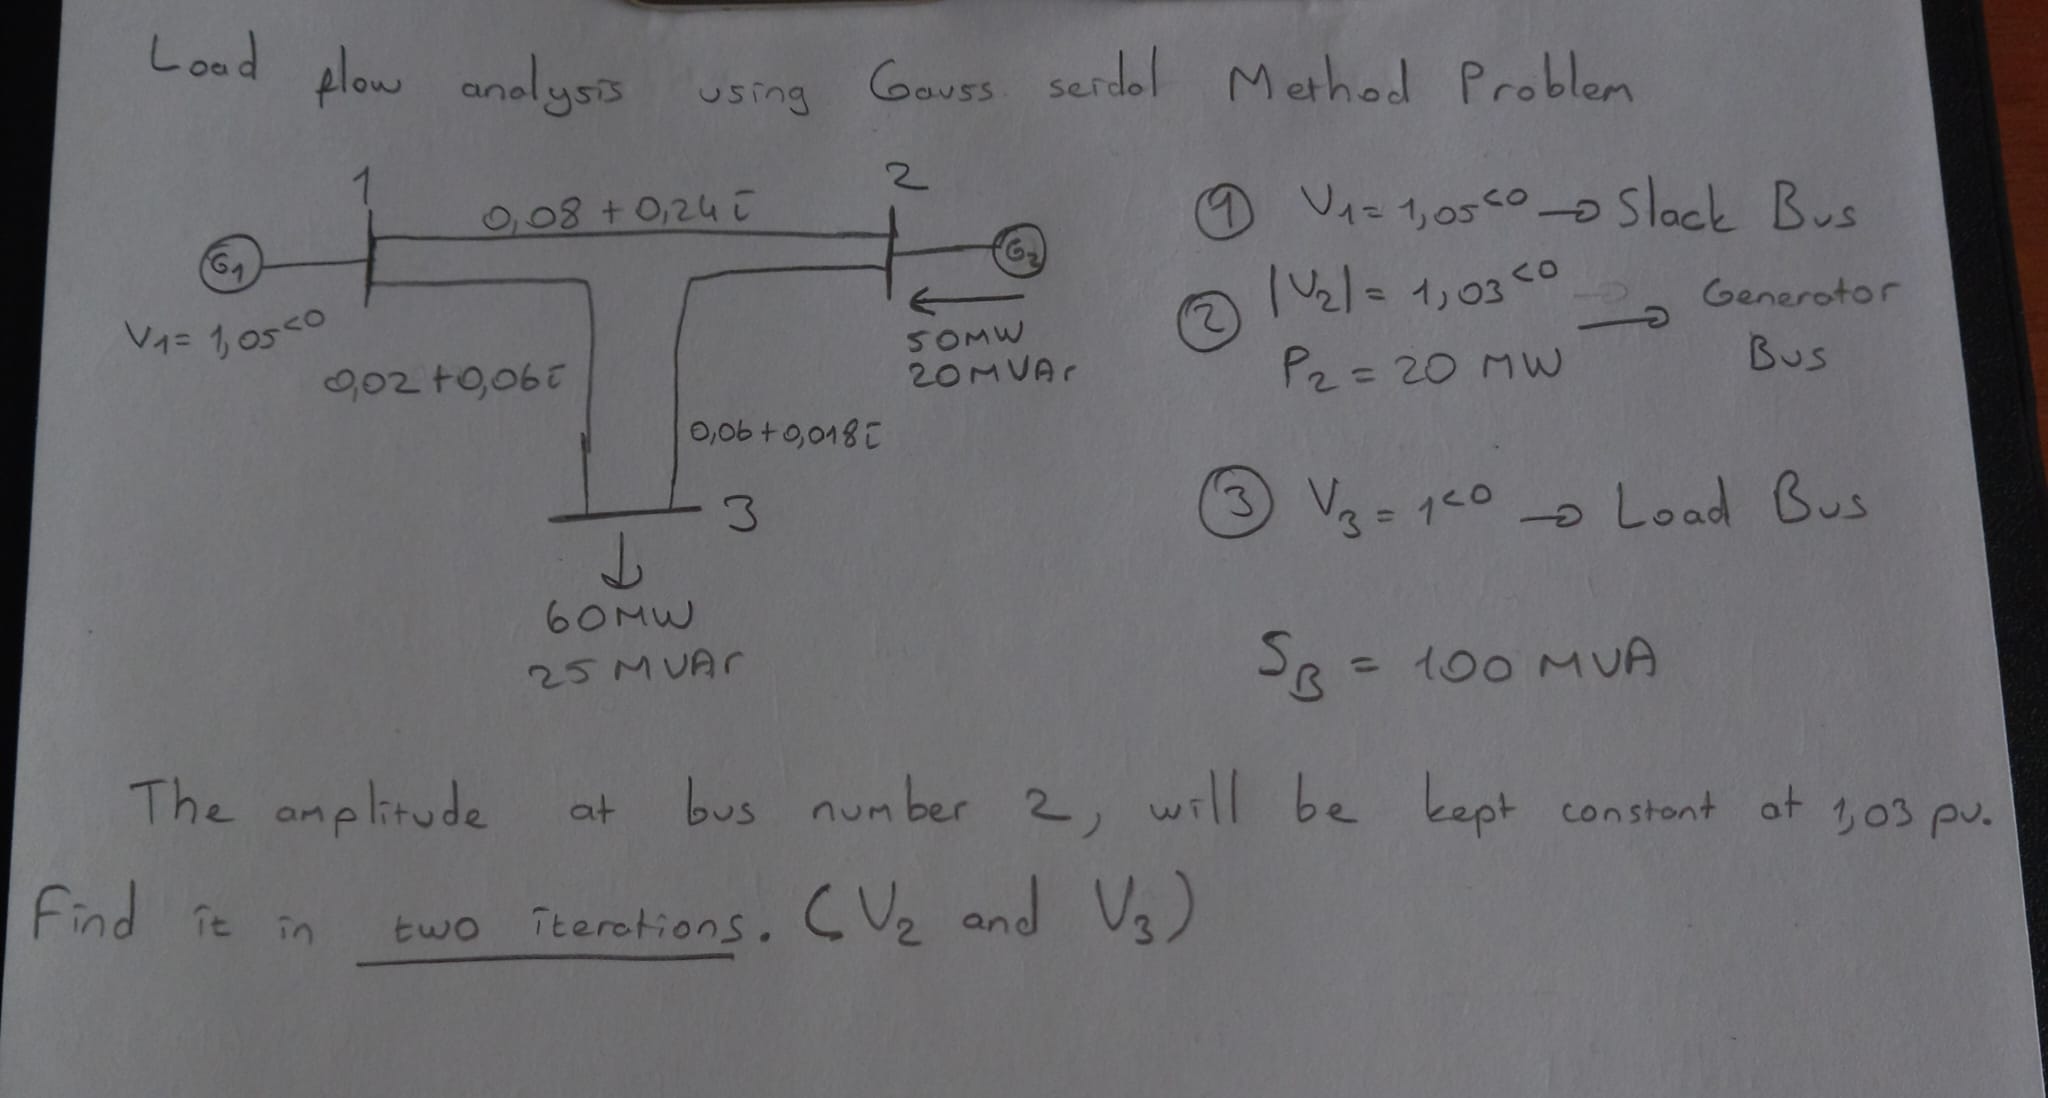 Load flow analysis using Gauss seidal Method Problem
1
2
0,08 + 0,24i
G1
G2
V1 = 1,05<0
50MW
20MVAr
0,02 + 0,06i
0,06 + 0,018i
3
60MW
25 MVAr
1 V1 = 1,05<0 → Slack Bus
2 |V2| = 1,03<0 → Generator Bus
P2 = 20 MW
3 V3 = 1<0 → Load Bus
SB = 100 MVA
The amplitude at bus number 2, will be kept constant at 1,03 pu.
Find it in two iterations. (V2 and V3)